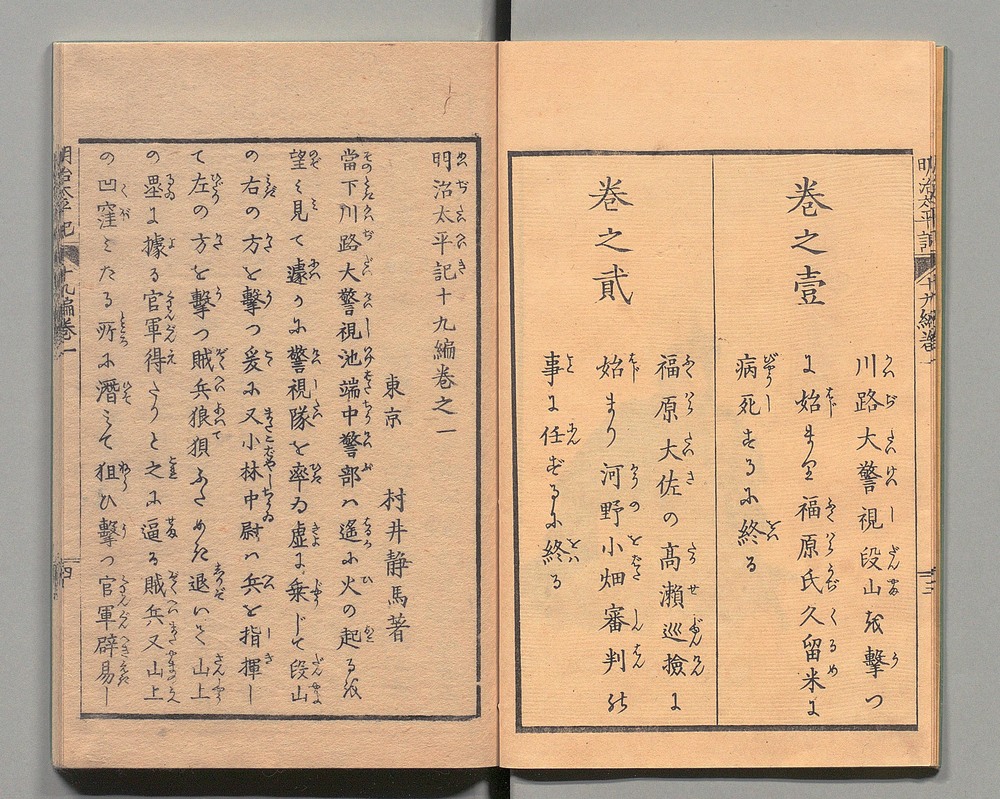 巻之壹
川路大警視段山を撃つ
に始まり福原氏久留米に
病死するに終る
巻之貳
福原大佐の高瀬巡撿に
始まり河野小畑審判の
事に任ずるに終る
明治太平記十九編巻之一
東京 村井静馬著
當下川路大警視池端中警部ハ遙に火の起るを
望ミ見て遽かに警視隊を率ゐ虚に乗じて段山
の右の方を撃つ爰に又小林中尉ハ兵を指揮し
て左の方を撃つ賊兵狼狽ふためき退いて山上
の塁に據る官軍得たりと之に逼る賊兵又山上
の凹窪ミたる所に潜ミて狙ひ撃つ官軍辟易し
明治太平記 十九編巻一 四